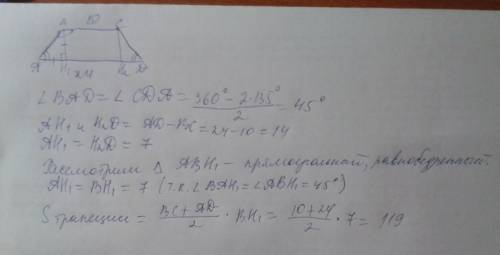 B 10 C
A H₁ H₂ D
24
∠BAD = ∠CDA = (360° - 2·135°)/2 = 45°
AH₁ и H₂D = AD - BC = 24 - 10 = 14
AH₁ = H₂D = 7
Рассмотрим Δ ABH₁ - прямоугольный, равнобедренный.
AH₁ = BH₁ = 7 (т.к. ∠BAH₁ = ∠ABH₁ = 45°)
S трапеции = (BC + AD)/2 · BH₁ = (10+24)/2 · 7 = 119